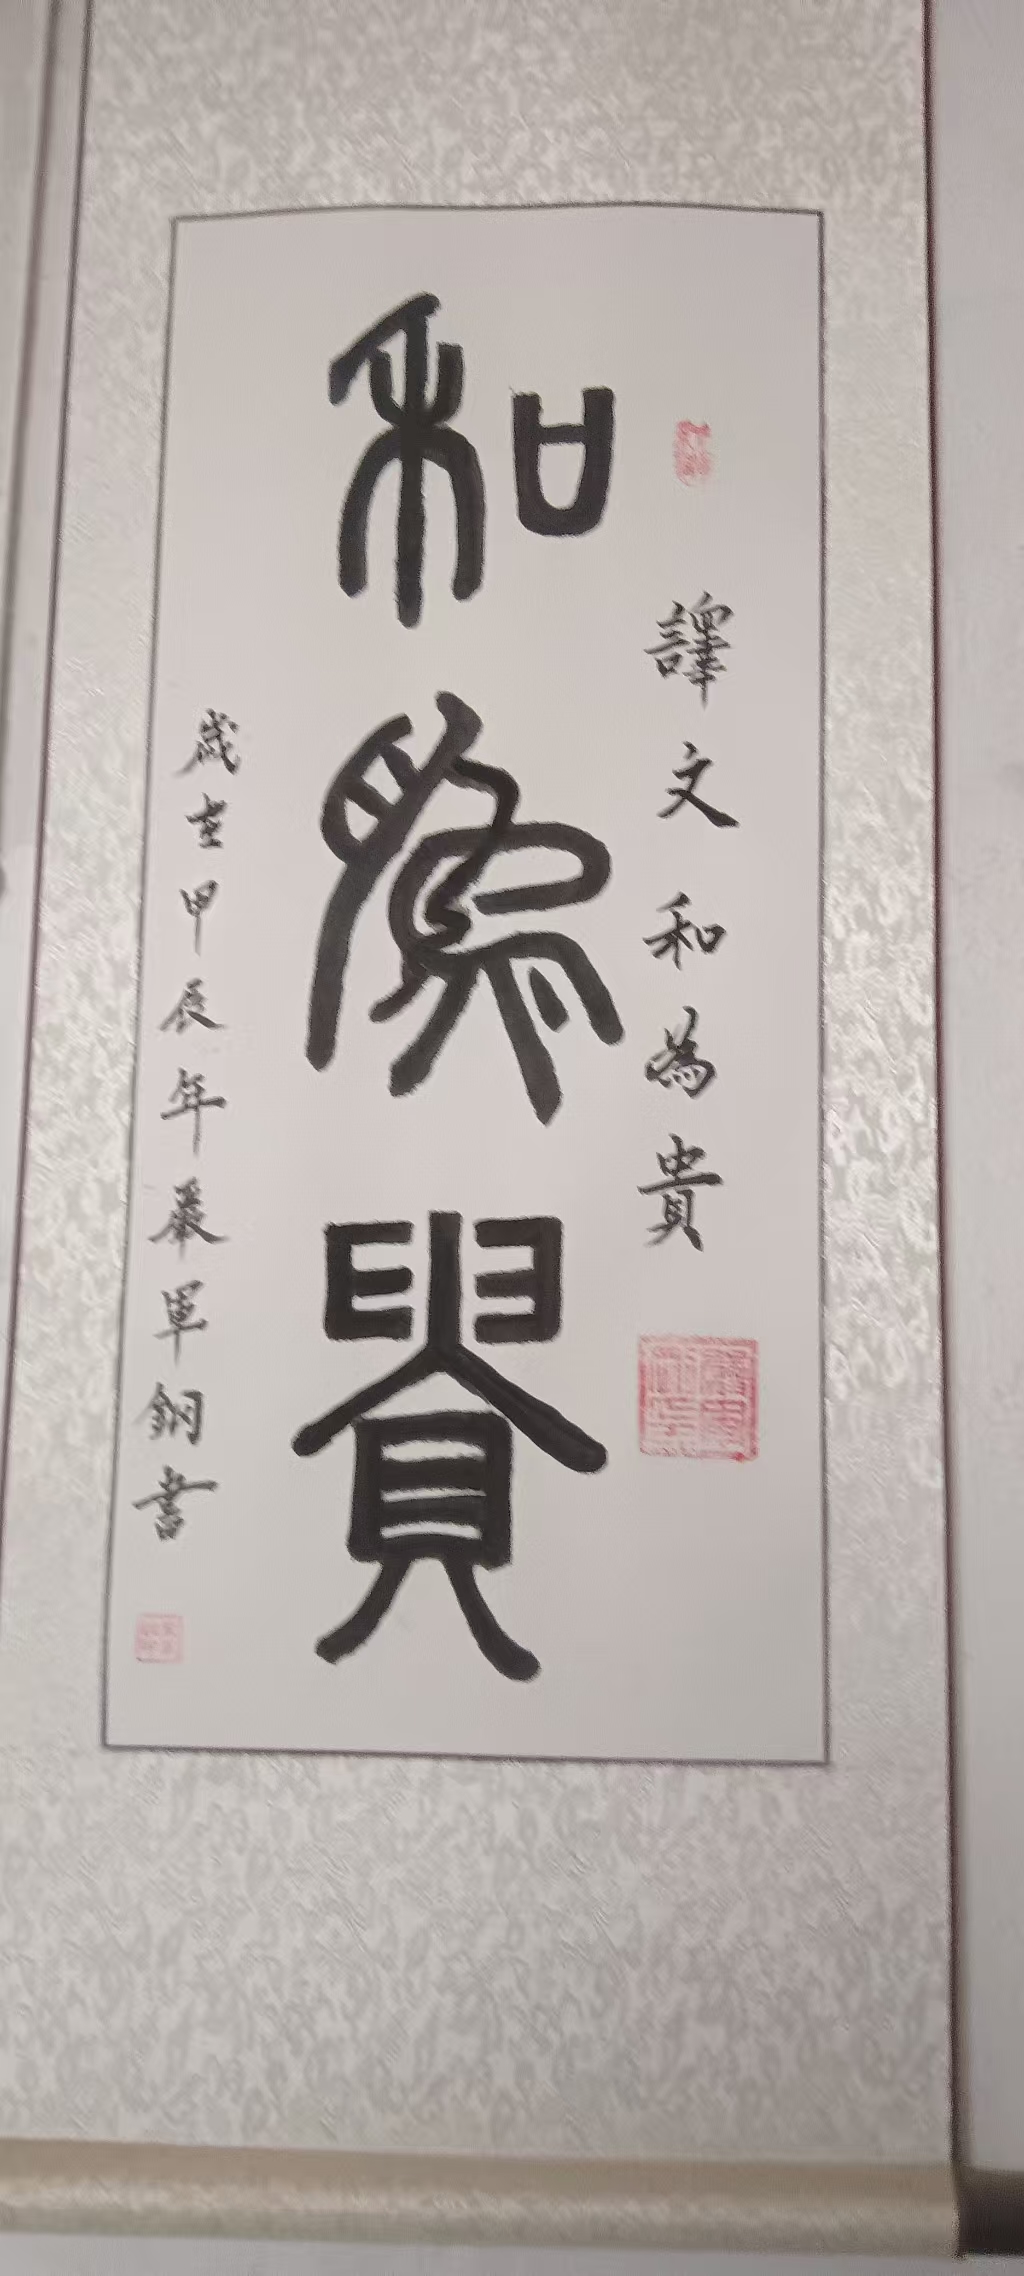 譯文和為貴
和為貴
歲在甲辰年嚴軍鋼書